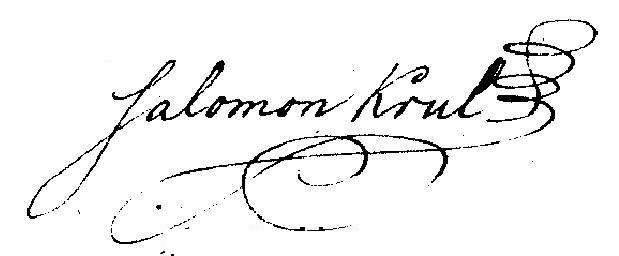 Salomon Krul